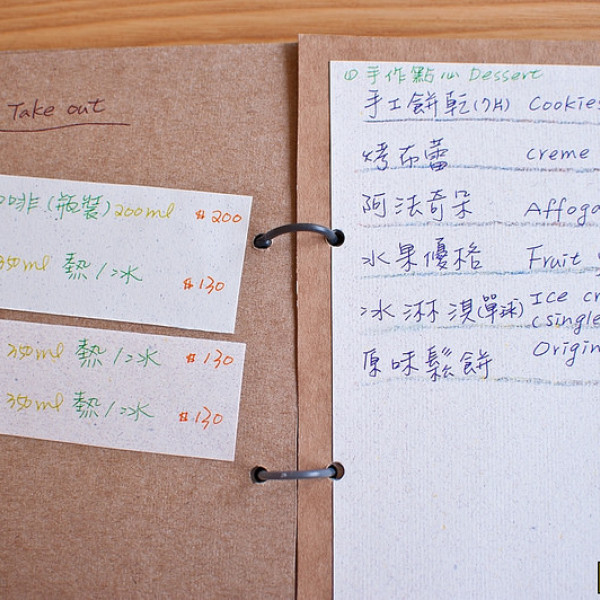 Take out
啡(瓶裝) 200ml $200
350ml 熱/冰 $130
350ml 熱/冰 $130
350ml 熱/冰 $130
手作點心 Dessert
手工餅乾(7片) Cookies
烤布蕾 creme
阿法奇朵 Affoga
水果優格 Fruit
冰淋淇(單球) Ice cr
(single
原味鬆餅 Origin